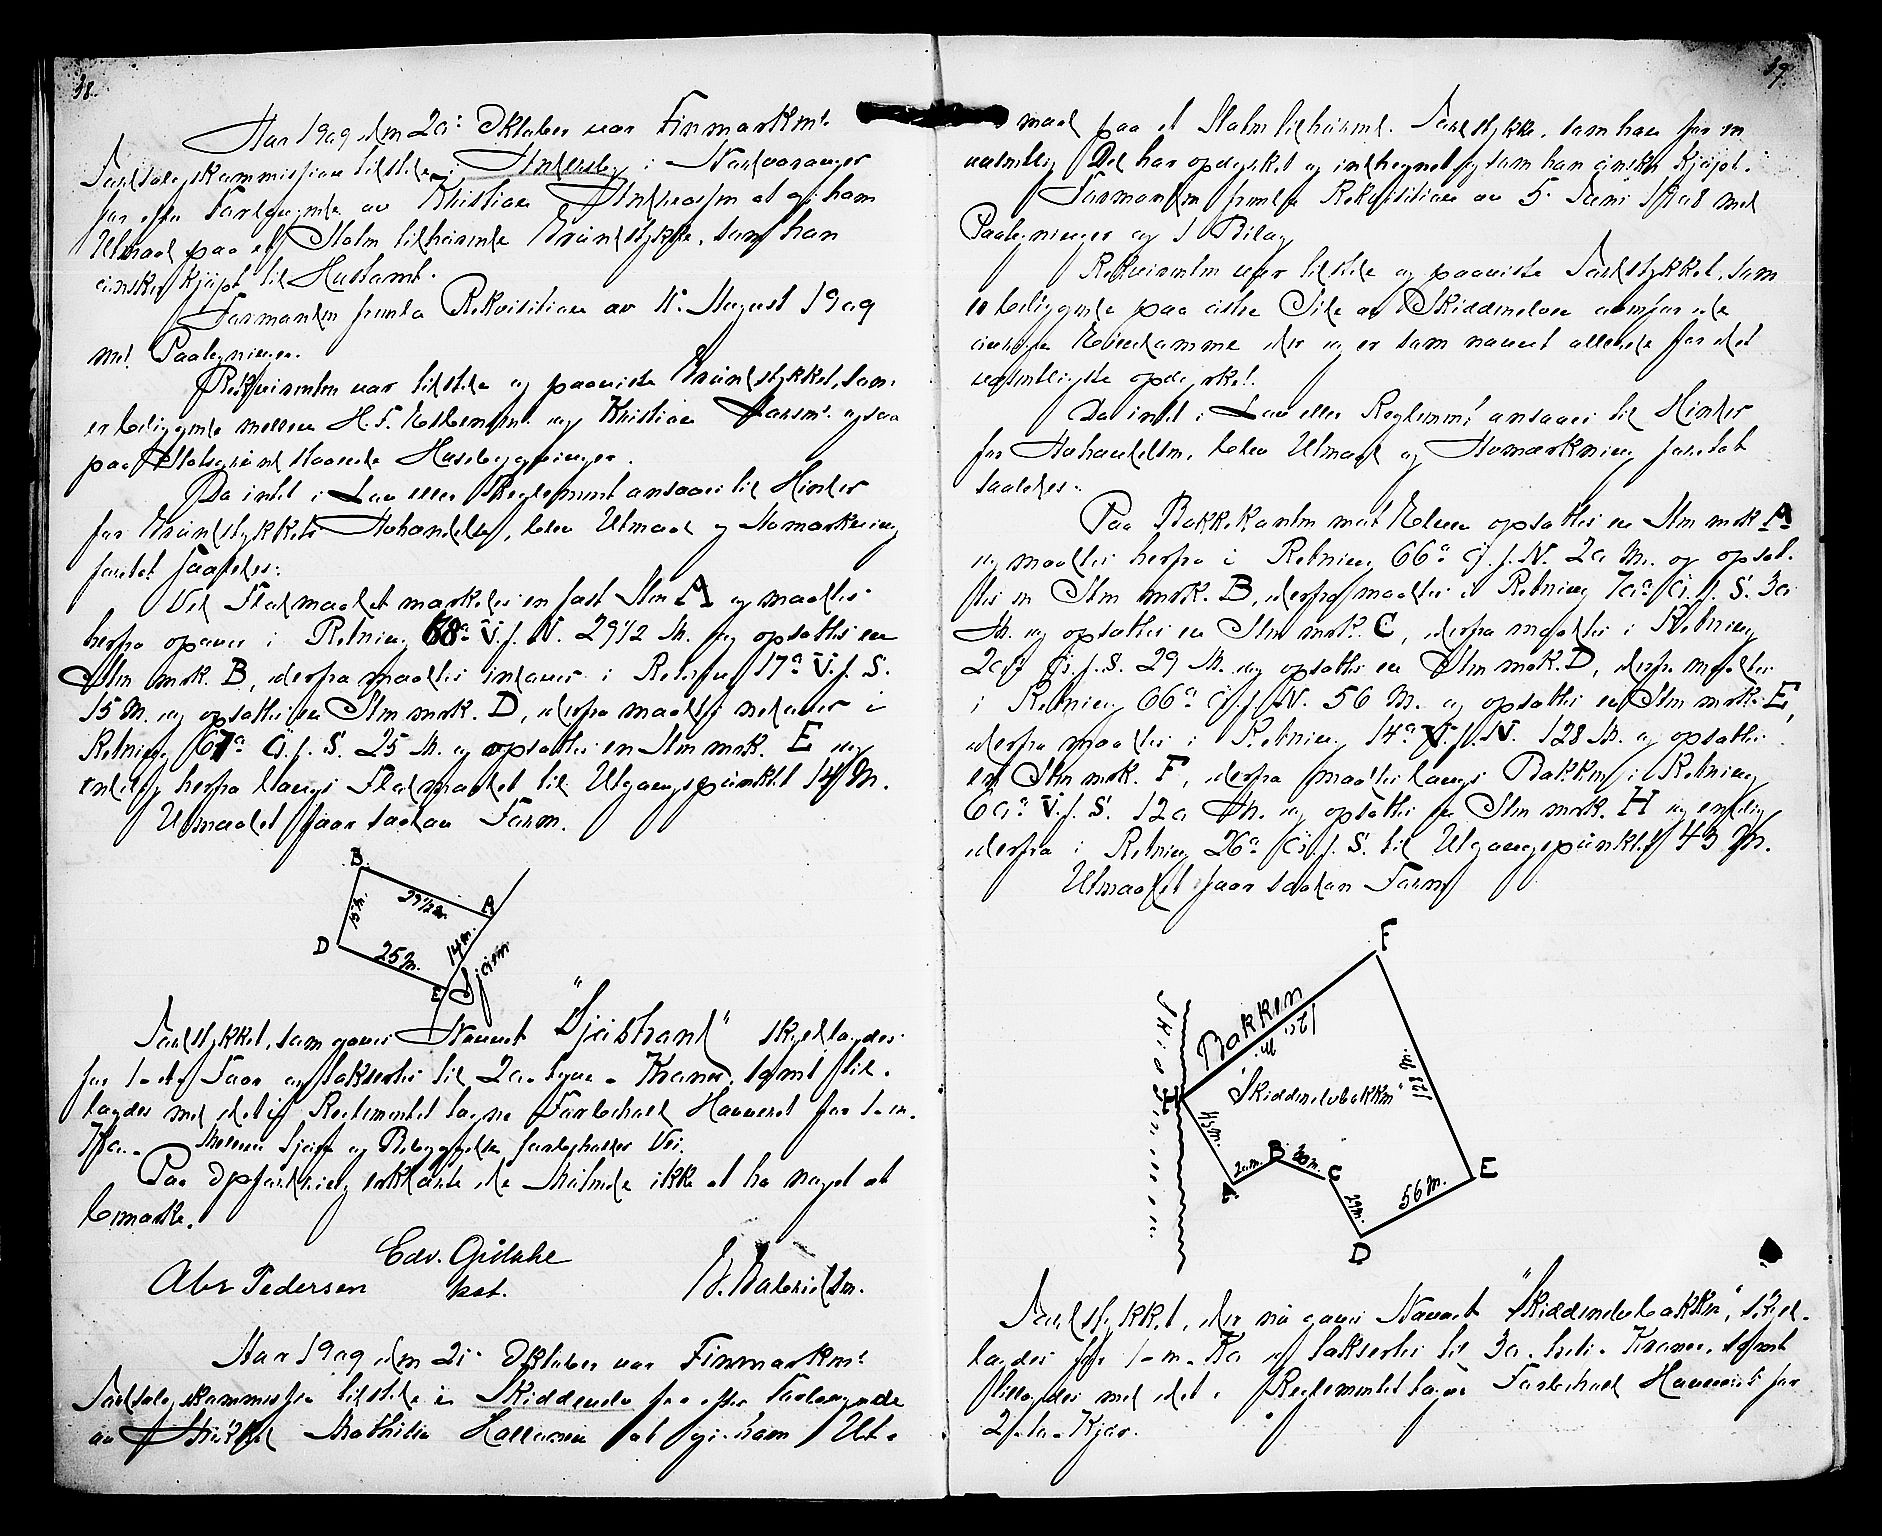 38.
Aar 1909 den 20de Oktober var Finmarkens
Jordsalgskommission tilstede i Andersby i Nordvaranger
for efter Forlangende av Kristian Andreassen at gi ham
Utmaal paa et Staten tilhørende Grundstykke, som han
ønsker kjøpt til Hustomt.
Formanden fremla Rekvisition av 11. August 1909
med Paategninger.
Rekvirenten var tilstede og paaviste Grundstykket, som
er beliggende mellem H. P. Esbensen og Kristian Larsens ogsaa
paa Statsgrund staaende Husebygninger.
Da intet i Lov eller Reglement ansaaes til Hinder
for Grundstykkets Avhændelse, blev Utmaal og Avmærkning
foretat saaledes:
Ved Flodmaalet mærkedes en fast Sten A og maaltes
herfra opover i Retning 68° V. f. N. 29 1/2 M. og opsattes en
Sten mrk. B, derfra maaltes indover i Retning 17° V. f. S.
15 M. og opsattes en Sten mrk. D, derfra maaltes nedover i
Retning 67° Ø. f. S. 25 M. og opsattes en Sten mrk. E og
endelig herfra langs Flodmaalet til Utgangspunktet 14 M.
Utmaalet faar saadan Form.
B
29 1/2 M.
A
15 M.
14 M.
D
25 M.
E
Sjøen
Jordstykket, som gives Navnet "Sjøstrand" skyldlægges
for 1- et Øre og takseres til 20- tyve - Kroner, samt til-
lægges med det i Reglementet tagne Forbehold Havneret for 1- en -
Ko. - Mellem Sjøen og Bebyggelsen forbeholdes Vei.
Paa Opfordring erklærte de Møtende ikke at ha noget at
bemærke.
Edv. Gidske
Abr Pedersen kst.
Aar 1909 den 21de Oktober var Finmarkens
Jordsalgskommission tilstede i Skiddenelv for efter Forlangende
av Mathilde at gi ham Ut-
39.
maal paa et Staten tilhørende Jordstykke, som han for en
væsentlig Del har opdyrket og indhegnet og som han ønsker kjøpt.
Formanden fremla Rekvisition av 5. Juni 1908 med
Paategninger og 1 Bilag
Rekvirenten var tilstede og paaviste Jordstykket, som
er beliggende paa østre Side av Skiddenelven ovenfor de
øvrige Eiendomme der og er som nævnt allerede for det
væsentligste opdyrket.
Da intet i Lov eller Reglement ansaaes til Hinder
for Avhændelsen, blev Utmaal og Avmærkning foretat
saaledes:
Paa Bakkekanten mot Elven opsattes en Sten mrk A
og maaltes herfra i Retning 66° Ø. f. N. 20 M. og opsat-
tes en Sten mrk. B, derfra maaltes i Retning 70° Ø. f. S. 30
M. og opsattes en Sten mrk. C, derfra maaltes i Retning
20° Ø. f. S. 29 M. og opsattes en Sten mrk. D, derfra maaltes
i Retning 66° Ø. f. N. 56 M. og opsattes en Sten mrk. E,
derfra maaltes i Retning 14° V. f. N. 128 M. og opsattes
en Sten mrk. F, derfra maaltes langs Bakken i Retning
60° V. f. S. 120 M. og opsattes en Sten mrk. H og endelig
derfra i Retning 26° Ø. f. S. til Utgangspunktet 43 M.
Utmaalet faar saadan Form
F
Bakken
120 M.
128 M.
"Skiddenelvbakken"
H
43 M.
A
20 M.
B
30 M.
C
29 M.
D
56 M.
E
Jordstykket, der nu gives Navnet "Skiddenelvbakken", skyld-
lægges for 1- en - Ko og takseres til 30- tredive - Kroner, samt
tillægges med det i Reglementet tagne Forbehold Havneret for
2 - to - Kjør.